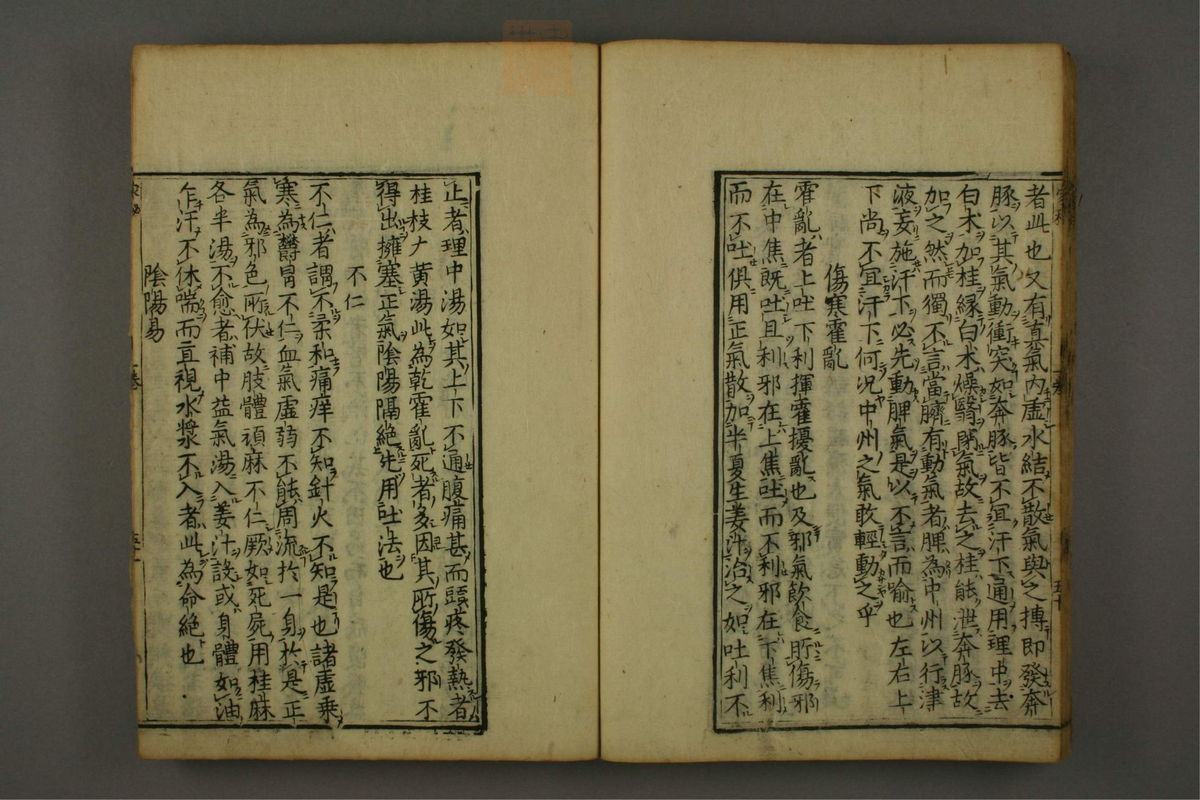 者此也又有真氣內虛水結不散氣與之搏即發奔
豚以其氣動衝突如奔豚皆不冝汗下通用理中去
白术加桂緣白术燥腎閉氣故去之桂能泄奔豚故
加之然而獨不言當臍有動氣者脾為中州以行津
液妄施汗下必先動脾氣是以不言而喻也左右上
下尚不冝汗下何況中州之氣敢輕動之乎
傷寒霍亂
霍亂者上吐下利揮霍擾亂也及邪氣飲食所傷邪
在中焦既吐且利邪在上焦吐而不利邪在下焦利
而不吐俱用正氣散加半夏生姜汁治之如吐利不
止者理中湯如其上下不通腹痛甚而頭疼發熱者
桂枝大黃湯此為乾霍亂死者多因其所傷之邪不
得出擁塞正氣陰陽隔絕先用吐法也
不仁
不仁者謂不柔和痛痒不知針火不知是也諸虛乘
寒為欝冒不仁血氣虛弱不能周流於一身於是正
氣為邪色所伏故肢體頑麻不仁厥如死屍用桂麻
各半湯不愈者補中益氣湯入姜汁設或身體如油
乍汗不休喘而直視水漿不入者此為命絕也
陰陽易